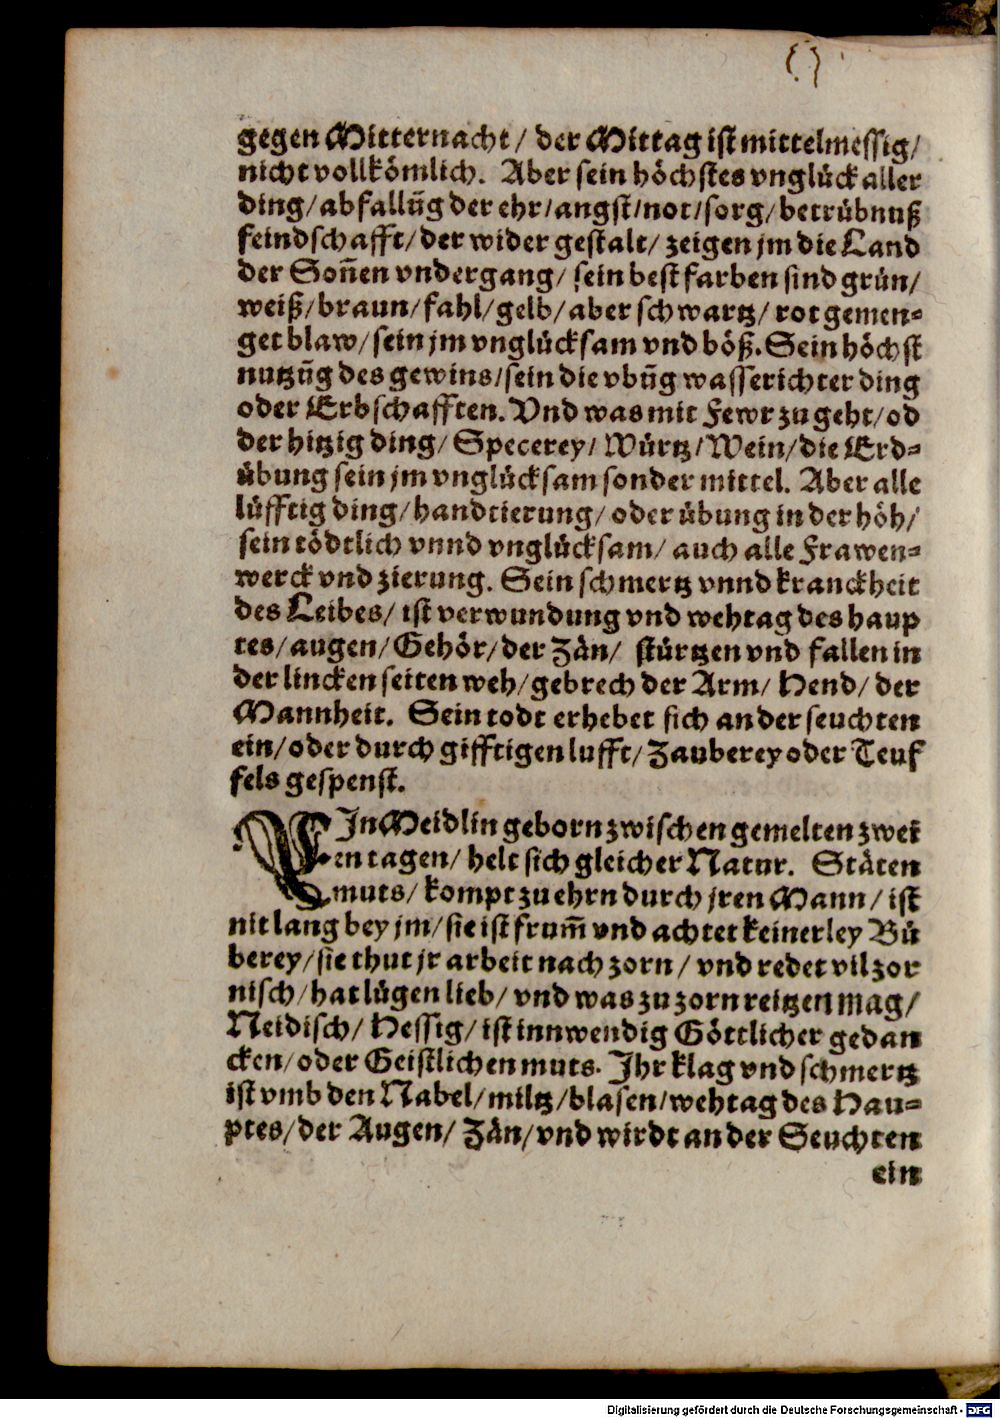 gegen Mitternacht / der Mittag ist mittelmessig /
nicht vollkömlich. Aber sein höchstes vnglück aller
ding / abfallūg der ehr / angst / not / sorg / betrübnuß
feindschafft / der wider gestalt / zeigen jm die Land
der Soñen vndergang / sein best farben sind grün /
weiß / braun / fahl / gelb / aber schwartz / rot gemen-
get blaw / sein jm vnglücksam vnd böß. Sein höchst
nutzūg des gewins / sein die vbūg wasserichter ding
oder Erbschafften. Vnd was mit Fewr zu geht / od
der hitzig ding / Specerey / Würtz / Wein / die Erd-
übung sein jm vnglücksam sonder mittel. Aber alle
lüfftig ding / handtierung / oder übung in der höh /
sein tödtlich vnnd vnglücksam / auch alle Frawen-
werck vnd zierung. Sein schmertz vnnd kranckheit
des Leibes / ist verwundung vnd wehtag des haup
tes / augen / Gehör / der Zän / stürtzen vnd fallen in
der lincken seiten weh / gebrech der Arm / Hend / der
Mannheit. Sein todt erhebet sich an der seuchten
ein / oder durch gifftigen lufft / Zauberey oder Teuf
fels gespenst.
EIn Meidlin geborn zwischen gemelten zwei
en tagen / helt sich gleicher Natur. Stäten
muts / kompt zu ehrn durch jren Mann / ist
nit lang bey jm / sie ist frum̄ vnd achtet keinerley Bü
berey / sie thut jr arbeit nach zorn / vnd redet vil zor
nisch / hat lügen lieb / vnd was zu zorn reitzen mag /
Neidisch / Hessig / ist innwendig Göttlicher gedan
cken / oder Geistlichen muts. Ihr klag vnd schmertz
ist vmb den Nabel / miltz / blasen / wehtag des Hau-
ptes / der Augen / Zän / vnd wirdt an der Seuchten
ein
Digitalisierung gefördert durch die Deutsche Forschungsgemeinschaft - DFG